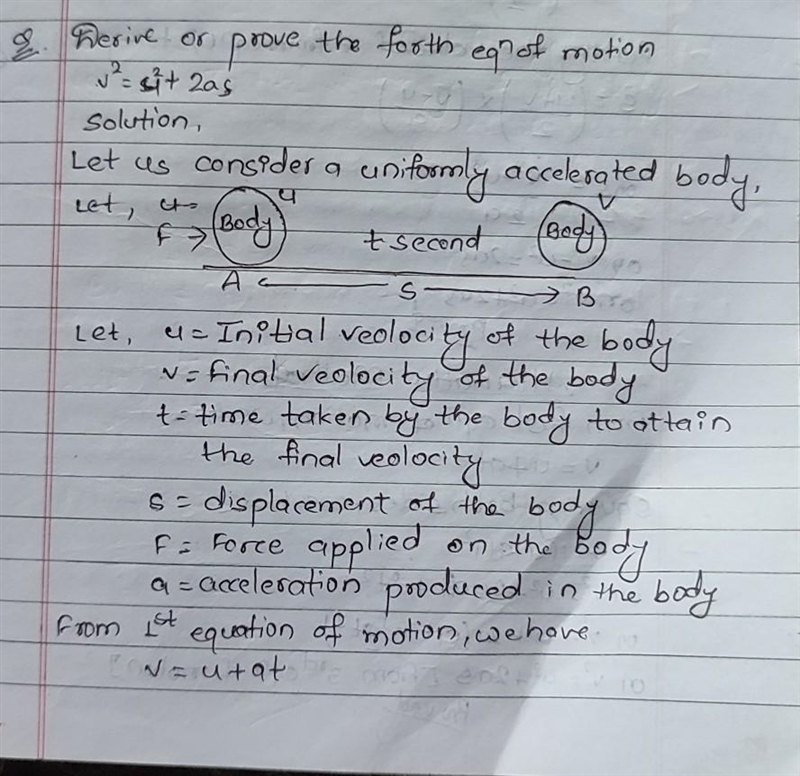 Q. Derive or prove the forth eqn of motion
v² = u² + 2as
Solution,
Let us consider a uniformly accelerated body,
Let, u= Body u v
F → t second Body
A ← S → B
Let, u = Initial veolocity of the body
v = final veolocity of the body
t = time taken by the body to attain
the final veolocity
s = displacement of the body
F = Force applied on the body
a = acceleration produced in the body
From 1st equation of motion, we have
v = u + at